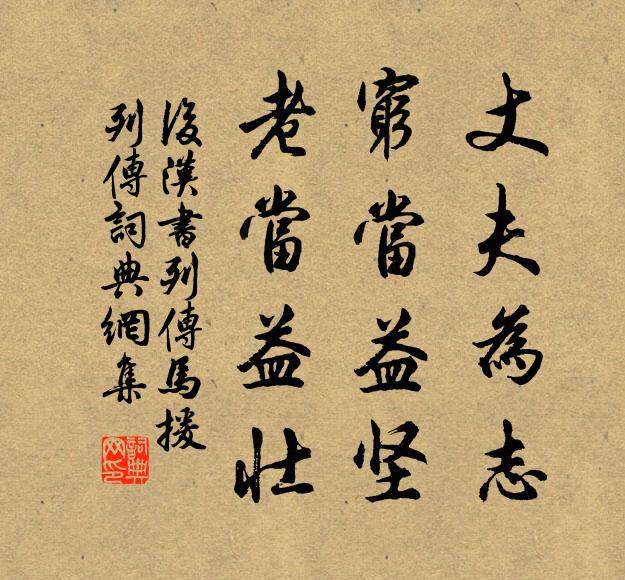 丈夫為志
窮當益坚
老當益壯
後漢書列傳馬援
列傳詞典網集
詞典网印